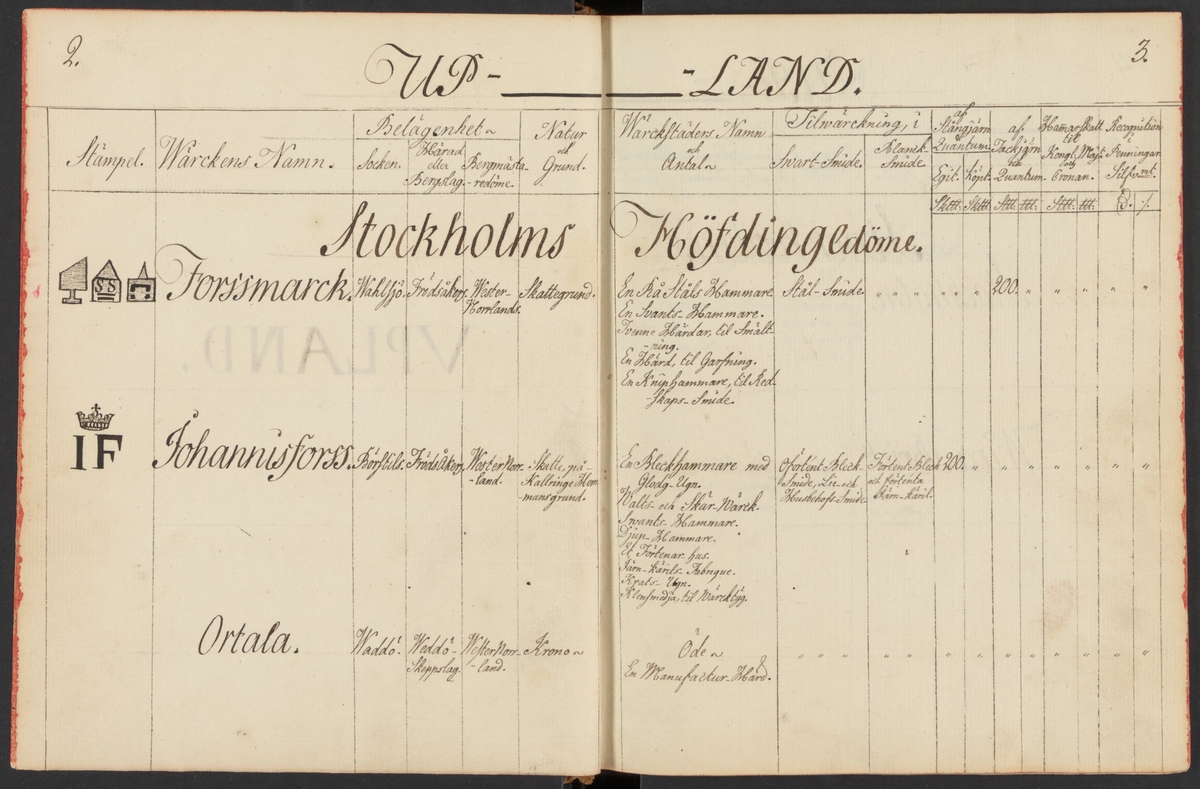 2.
3.
UP- -LAND.
Stämpel.
Wärckens Namn.
Belägenhet
Socken.
Härad
eller
Bergslag.
Bergmästa
-redöme.
Natur
och
Grund.
Wärckstäders Namn
och
Antal
Tilwärckning, i
Swart-Smide.
Blanck-
Smide
af
Stångjärn
Quantum.
Egit. Köpt.
af
Tackjärn
och
Quantum.
Hamarskatt
til
Kongl. Majt.
och
Cronan.
Recognition
i
Penningar
Silfvmt.
Stockholms Höfdingedöme.
SS
Forssmarck.
Wahlsjö.
Frödsåkers.
Wester-
Norrlands.
Skattegrund.
En Rå Ståls Hammare
En Svants-Hammare.
Tvenne Härdar, til Smält-
-ning.
En Härd, til Garfning.
En Kniphammare, til Red-
skaps-Smide.
Stål-Smide.
" " " " " 200. " " " " "
IF
Johannisforss.
Börstils.
Frödsåkers.
WesterNorr-
-land.
Skatte, på
Kallringe Hem-
mansgrund.
En Bleckhammare med
Glödg-Ugn.
Valts- och Skär-Wärck.
Svants-Hammare.
Djup-Hammare.
Et Förtenar-hus.
Järn-Kärils-Fabrique.
Krats-Ugn.
Klensmedja, til Wärcktÿg.
Oförtent Bleck-
Smide, Lie- och
Husbehofs-Smide
Förtent Bleck
och förtenta
Järn-Käril.
300. " " " " " " "
Ortala.
Waddö.
Weddö-
Skeppslag.
WesterNorr-
-land.
Krono
Öde
En Manufactur-Härd.
" " " " " " " " " " " "
VPLAND.